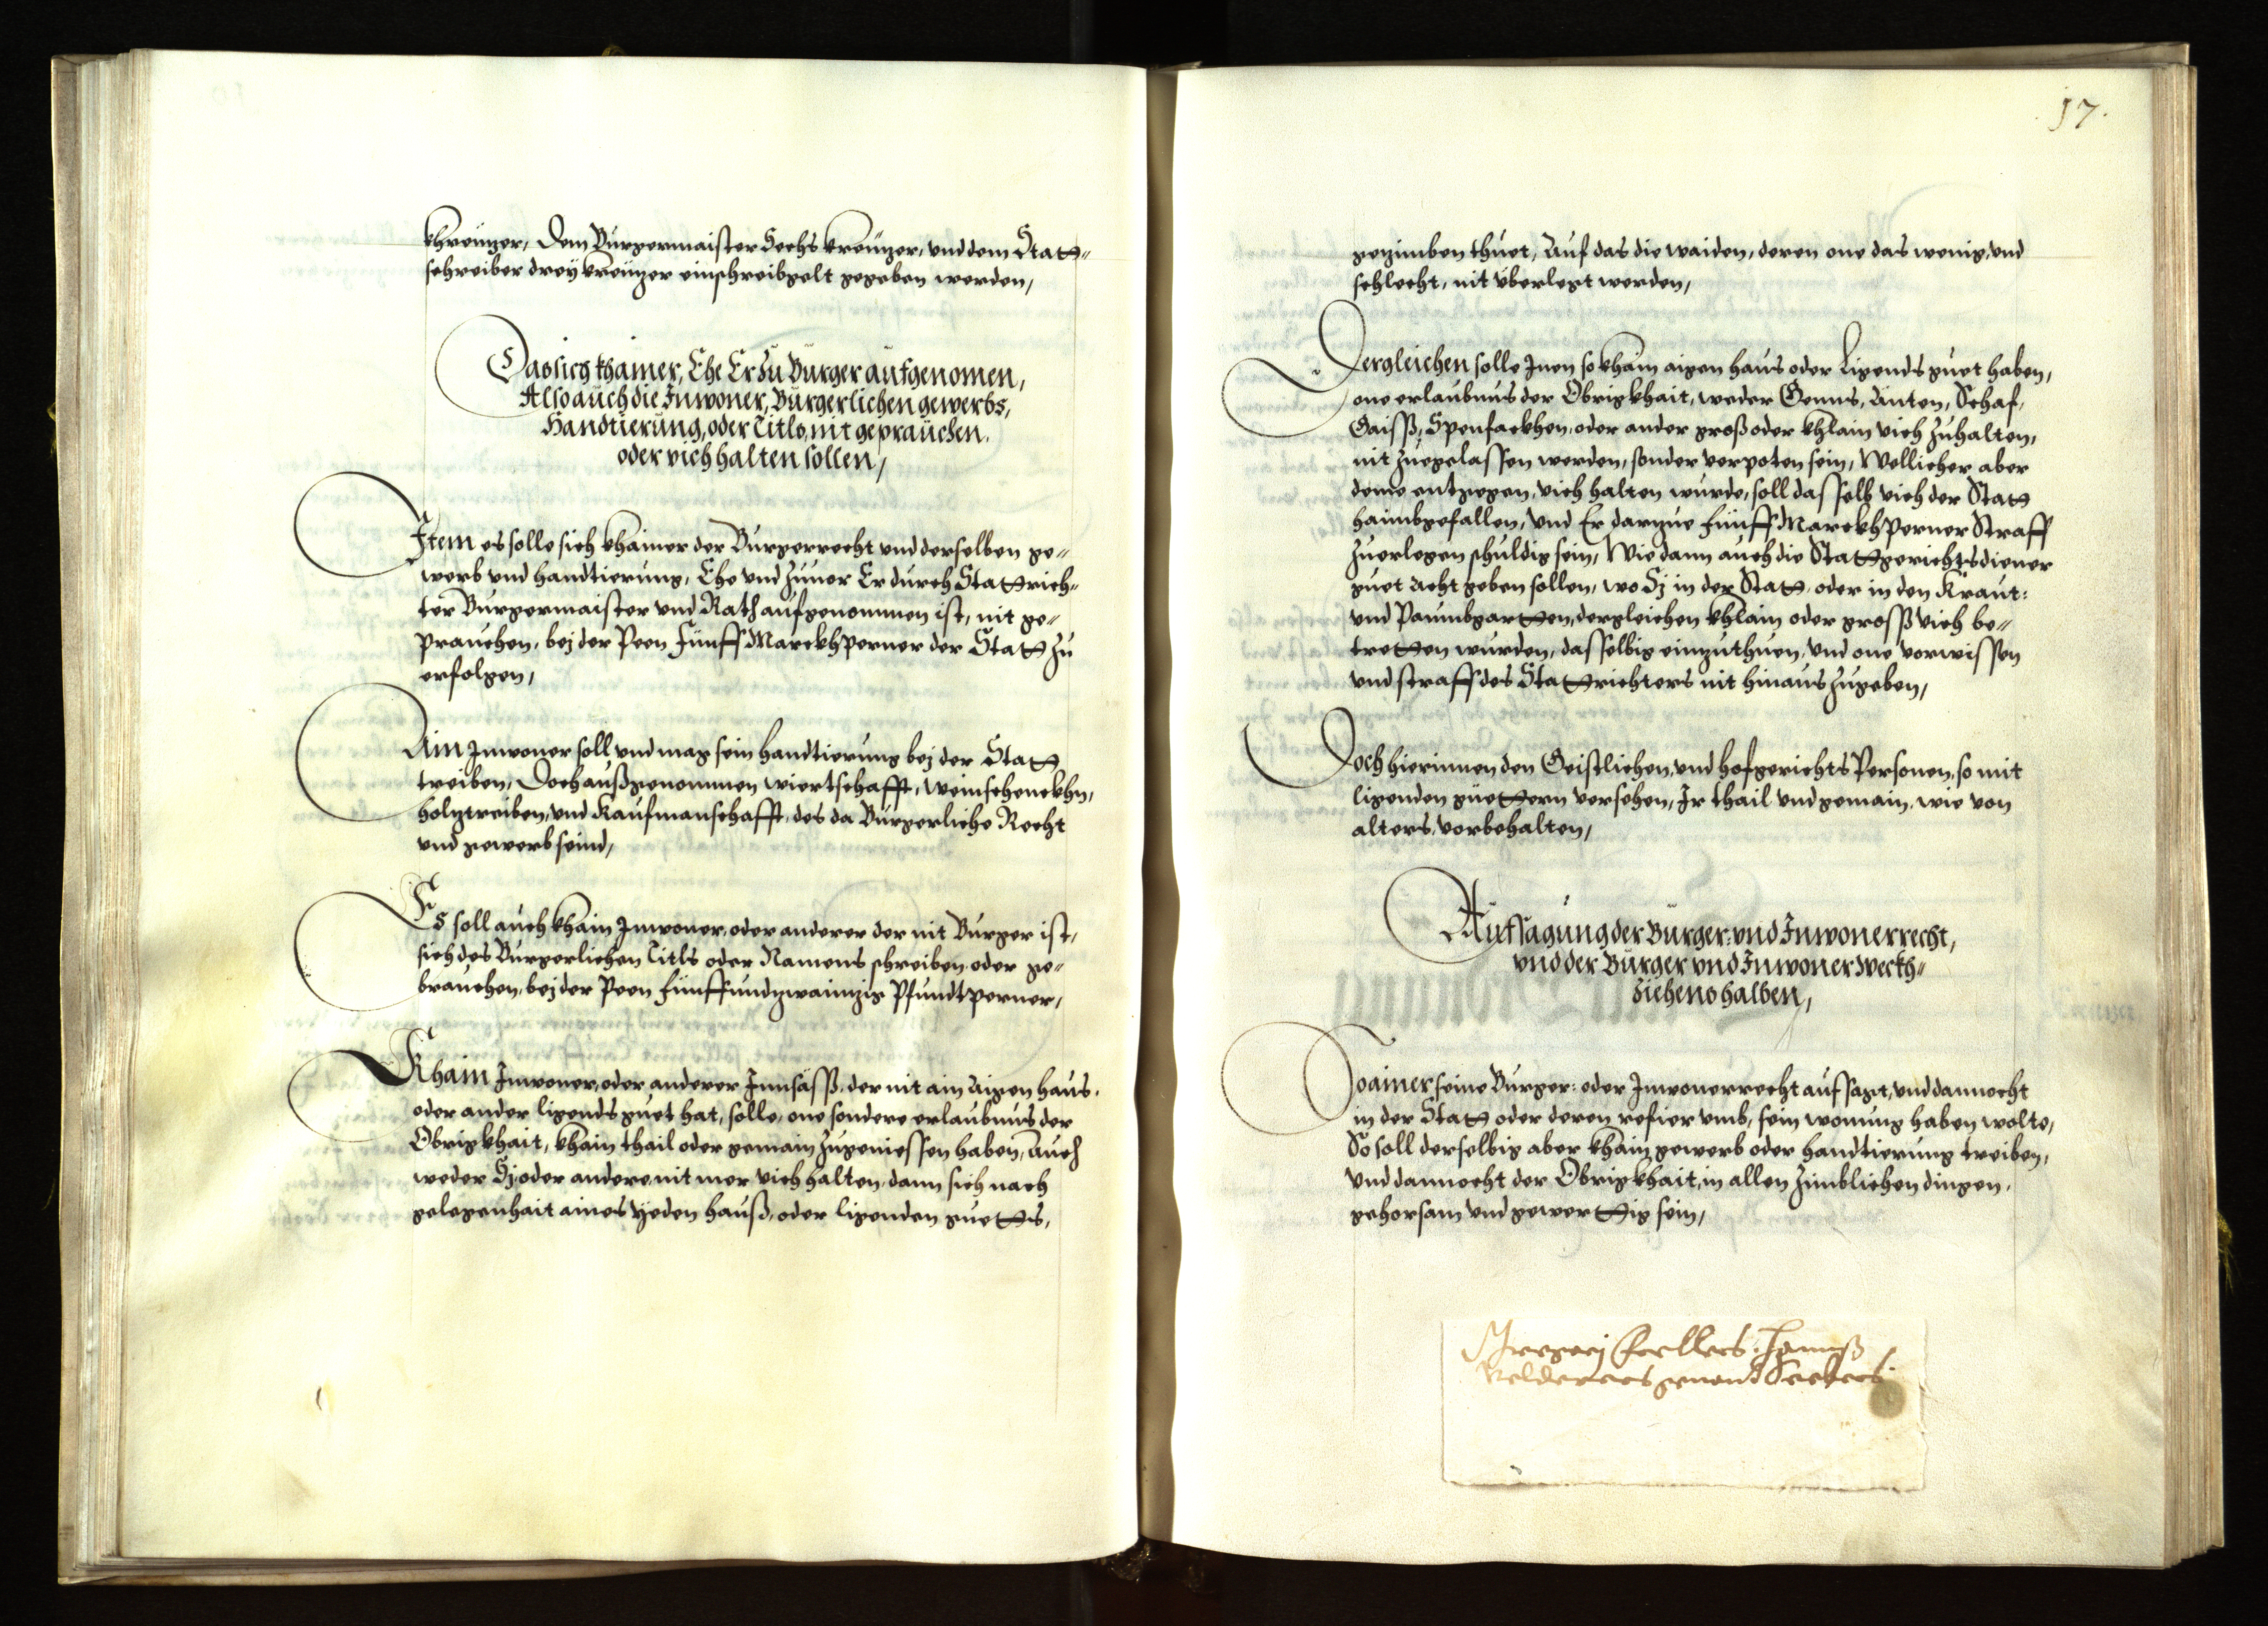 khreünzer, Dem Burgermaister Sechs kreützer, und dem Statt„
schreiber drey kreützer einschreibgelt gegeben werden,
Das sich khainer, Ehe Er Zu Burger aufgenomen,
Also auch die Inwoner, Burgerlichen gewerbs,
Handtierung, oder Titls, nit geprauchen,
oder vich halten sollen,
Item es solle sich khainer der Burgerrecht und derselben ge„
werb und handtierung, Ehe und Zuuor Er durch Stattrich„
ter Burgermaister und Rath aufgenommen ist, nit ge„
prauchen, bej der Peen Fünff Marckh Perner der Statt Zu
erfolgen,
Ain Inwoner soll und mag sein handtierung bej der Statt
treiben, Doch außgenommen wiertschafft, weinschenckhn,
holtztreiben, und Kaufmanschafft, des da Burgerliche Recht
und gewerb seind,
Es soll auch khain Inwoner, oder anderer der nit Burger ist,
sich des Burgerlichen Titls oder Namens schreiben oder ge„
brauchen, bej der Peen fünffundzwaintzig Pfundt perner,
Khain Inwoner, oder anderer Innsäss, der nit ain Aigen haus,
oder ander ligends guet hat, solle, one sondere erlaubnus der
Obrigkhait, khain thail oder gemain Zugeniessen haben, Auch
weder Sj oder andere, nit mer vich halten, dann sich nach
gelegenhait aines yeden hauß, oder ligenden guetts,
17.
gezimben thuet, Auf das die waiden, deren one das wenig, und
schlecht, nit überlegt werden,
Dergleichen solle Inen so kham aigen haus oder Ligends guet haben,
one erlaubnus der Obrigkhait, weder Genns, Änten, Schaf,
Gaiss, Spenfackhen, oder ander groß oder khlain vich Zuhalten,
nit Zuegelassen werden, sonder verpoten sein, Wellicher aber
deme entgegen, vich halten wurde, soll dasselb vich der Statt
haimbgefallen, und Er dartzue Fünff Marckh Perner Straff
Zuerlegen schuldig sein, Wie dann auch die Stattgerichtsdiener
guet Acht geben sollen, wo Sj in der Statt, oder in den Kraut:
und Paumbgartten, dergleichen khlain oder gross vich be„
tretten wurden, dasselbig einzuthuen, und one vorwissen
und straff des Stattrichters nit hinaus Zugeben,
Doch hierinnen den Geistlichen, und hofgerichts Personen, so mit
ligenden güettern versehen, Ir thail und gemain, wie von
alters, vorbehalten,
Aufsagung der Burger: und Inwonerrecht,
und der Burger und Inwoner Weckh„
ziehens halben,
So ainer seine Burger: oder Inwonerrecht aufsagt, und dannocht
in der Statt oder deren refier umb, sein wonung haben wolte,
So soll derselbig aber khain gewerb oder handtierung treiben,
und dannocht der Obrigkhait, in allen Zimblichen dingen,
gehorsam und gewerttig sein,